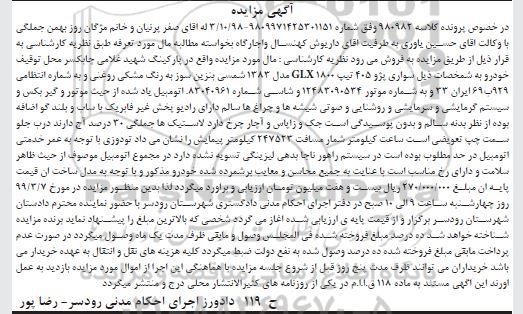 آگهی مزایده
در خصوص پرونده کلاسه ۹۸۰۹۸۲ وفق شماره ۹۸۰۹۹۷۱۴۲۵۳۰۱۱۵۱-۳/۱۰/۹۸ له اقای صفر پرنیان و خانم مژگان روز بهمن جملگی
با وکالت اقای حسین یاوری به طرفیت اقای داریوش کهنسال واجارگاه بخواسته مطالبه مال مورد تعرفه طبق نظریه کارشناسی به
قرار ذیل از طریق مزایده به فروش می رود نظریه کارشناسی : مال مورد مزایده واقع در پارکینگ شهید غلامی چابکسر محل توقیف
خودرو به شمخصات ذیل سواری پژو ۴۰۵ تیپ GLX ۱۸۰۰ مدل ۱۳۸۳ شمسی بنزین سوز به رنگ مشکی روغنی و به شماره انتظامی
۹۲۹ب۶۹ ایران ۲۳ و به شماره موتور ۱۲۴۸۳۰۹۰۵۳۴ و شاسی شماره ۸۳۰۴۰۹۶۱. اتومبیل یاد شده از حیث موتور و گیر بکس و
سیستم گرمایشی و سرمایشی و روشنایی و صوتی شیشه ها و چراغ ها سالم دارای رادیو پخش غیر فابریک با ساب و بلند گو اضافه
بوده از نظر بدنه سالم و بدون پوسیدگی است جک و زاپاس و آچار چرخ دارد لاستیک ها جملگی ۳۰ درصد آج دارند درب جلو
سمت چپ تعویضی است ساعت کیلومتر شمار مسافت ۲۴۷۵۲۳ کیلومتر پیمایش را نشان می داد تودوزی با توجه به عمر خدمتی
اتومبیل در حد مطلوب بوده است در سیستم راهور ناجا بدهی لیزینگی تسویه نشده دارد در مجموع اتومبیل موصوف از حیث ظاهر
سلامت و دارای رخ مناسب است با عنایت به جمیع محاسن و معایب برشمرده شده خودرو مذکور و با توجه به مدل ساخت ان قیمت
پایه ان مبلغ ۲۷۰/۰۰۰/۰۰۰ ریال بیست و هفت میلیون تومان ارزیابی و براورد میگردد لذا بدین منظور مزایده در مورخ ۹۹/۳/۷
روز چهارشنبه ساعت ۹ الی ۱۰ صبح در دفتر اجرای احکام مدنی دادگستری شهرستان رودسر با حضور نماینده محترم دادستان
شهرستان رودسر برگزار و از قیمت پایه ی ارزیابی شده اغاز می گردد شخصی که بالاترین مبلغ را پیشنهاد نماید برنده مزایده
شناخته خواهد شد ده درصد مبلغ فروخته شده فی المجلس وصول و مابقی ظرف مدت یک ماه وصول میگردد در صورت عدم
پرداخت مابقی مبلغ فروخته شده ده درصد وصول شده به نفع دولت ضبط میگردد کلیه هزینه های نقل و انتقال به عهده خریدار می
باشد خریداران می توانند ظرف مدت پنج روز قبل از شروع جلسه مزایده با هماهنگی این اجرا از اموال مورد مزایده بازدید به عمل
اورند این آگهی مستند به ماده ۱۱۸ ق.ا.ا.م در یکی از روزنامه های کثیرالانتشار محلی درج و منتشر میگردد
ح ۱۱۹ دادورز اجرای احکام مدنی رودسر- رضا پور